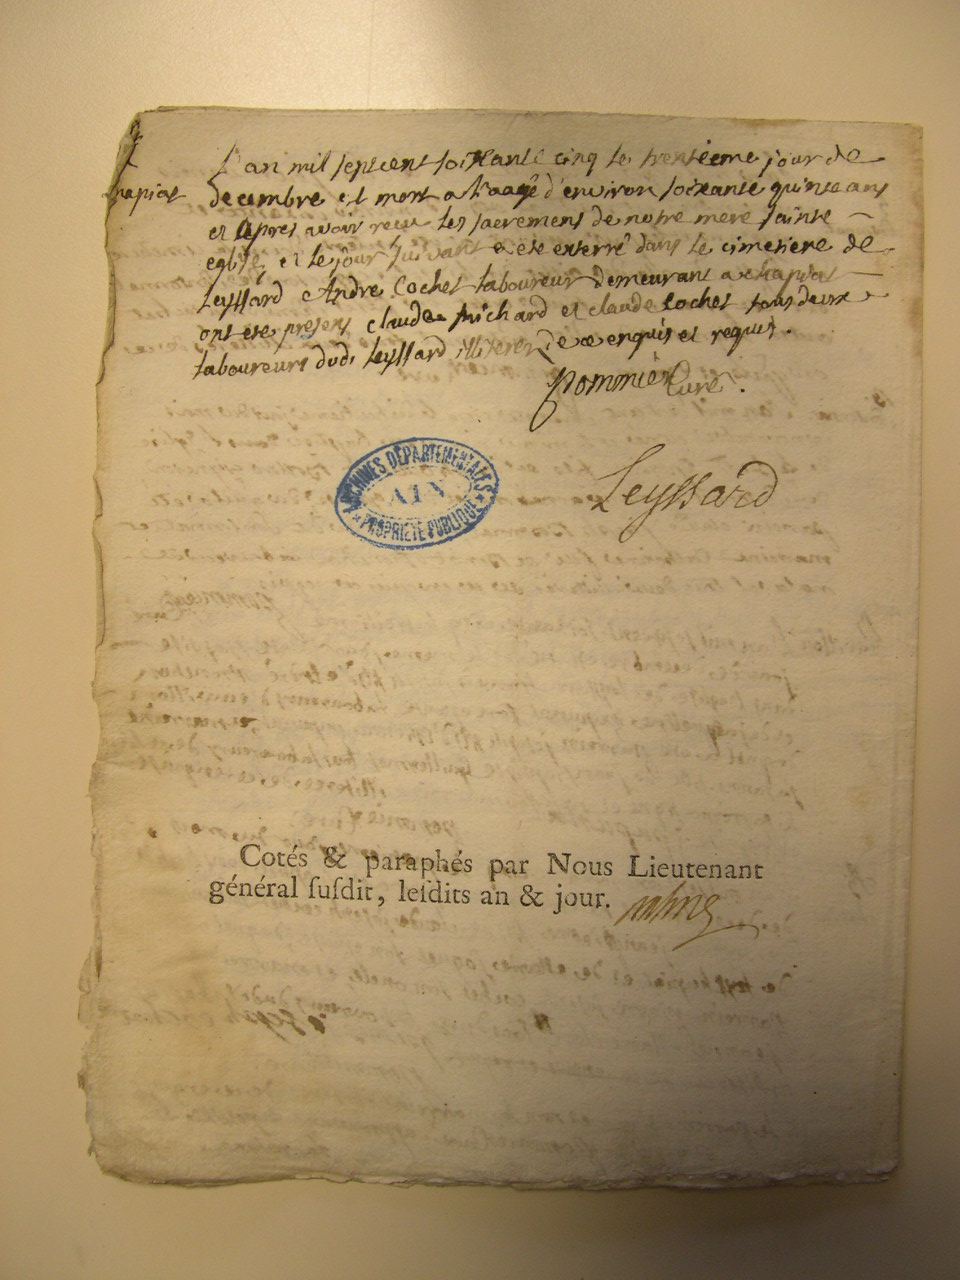 Chapiat
L'an mil septcent soixante cinq le trentieme jour de
decembre est mort a l'aagé d'environ soixante quinse ans
et apres avoir recu les sacremens de notre mere sainte
eglise, et le jour suivant a été enterré dans le cimetiere de
Leyssard Andre Cochet laboureur demeurant a chapiat
ont ete presens claude Michard et claude Cochet tous deux
laboureurs dudi Leyssard illiteres de ce enquis et requis.
Pommier Curé.
Leyssard
ARCHIVES DÉPARTEMENTALES
AIN
PROPRIÉTÉ PUBLIQUE
Cotés & paraphés par Nous Lieutenant
général ſuſdit, leſdits an & jour.